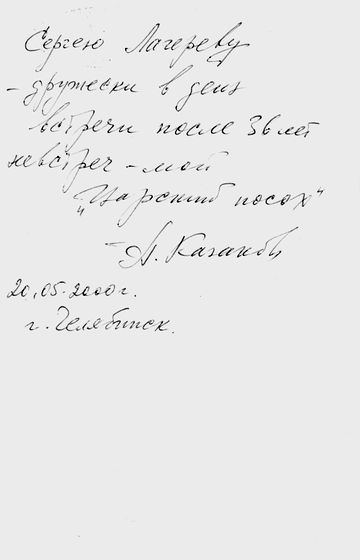 Сергею Лагереву
- дружески в день
встречи после 36 лет
невстреч - мой
"Царский посох"
А. Казаков
20.05.2000г.
г. Челябинск.